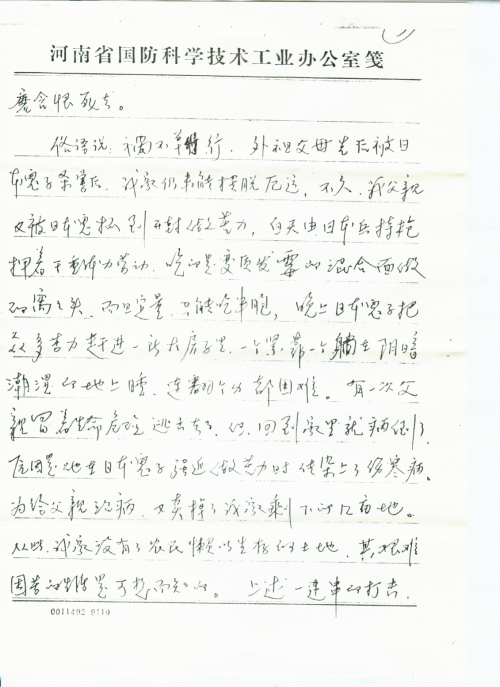 河南省国防科学技术工业办公室笺
磨含恨死去。
俗语说:祸不单行,外祖父母先后被日
本鬼子杀害后,我家仍未能摆脱厄运,不久,我父亲
又被日本鬼抓到开封做劳力,白天由日本兵持枪
押着干重体力劳动,吃的是变质发霉的混合面做
的窝头,而且定量,只能吃半饱,晚上日本鬼子把
众多苦力赶进一所大房子里,一个紧靠一个躺在阴暗
潮湿的地上睡,连翻个身都困难。有一次父
亲冒着生命危险逃出来了,但回到家里就病倒了,
原因是他在日本鬼子强迫做劳力时传染上了伤寒病。
为给父亲治病,又卖掉了我家剩下的几亩地。
从此,我家没有了农民赖以生存的土地,其艰难
困苦的生活是可想而知的。上述一连串的打击,
0011492·9110